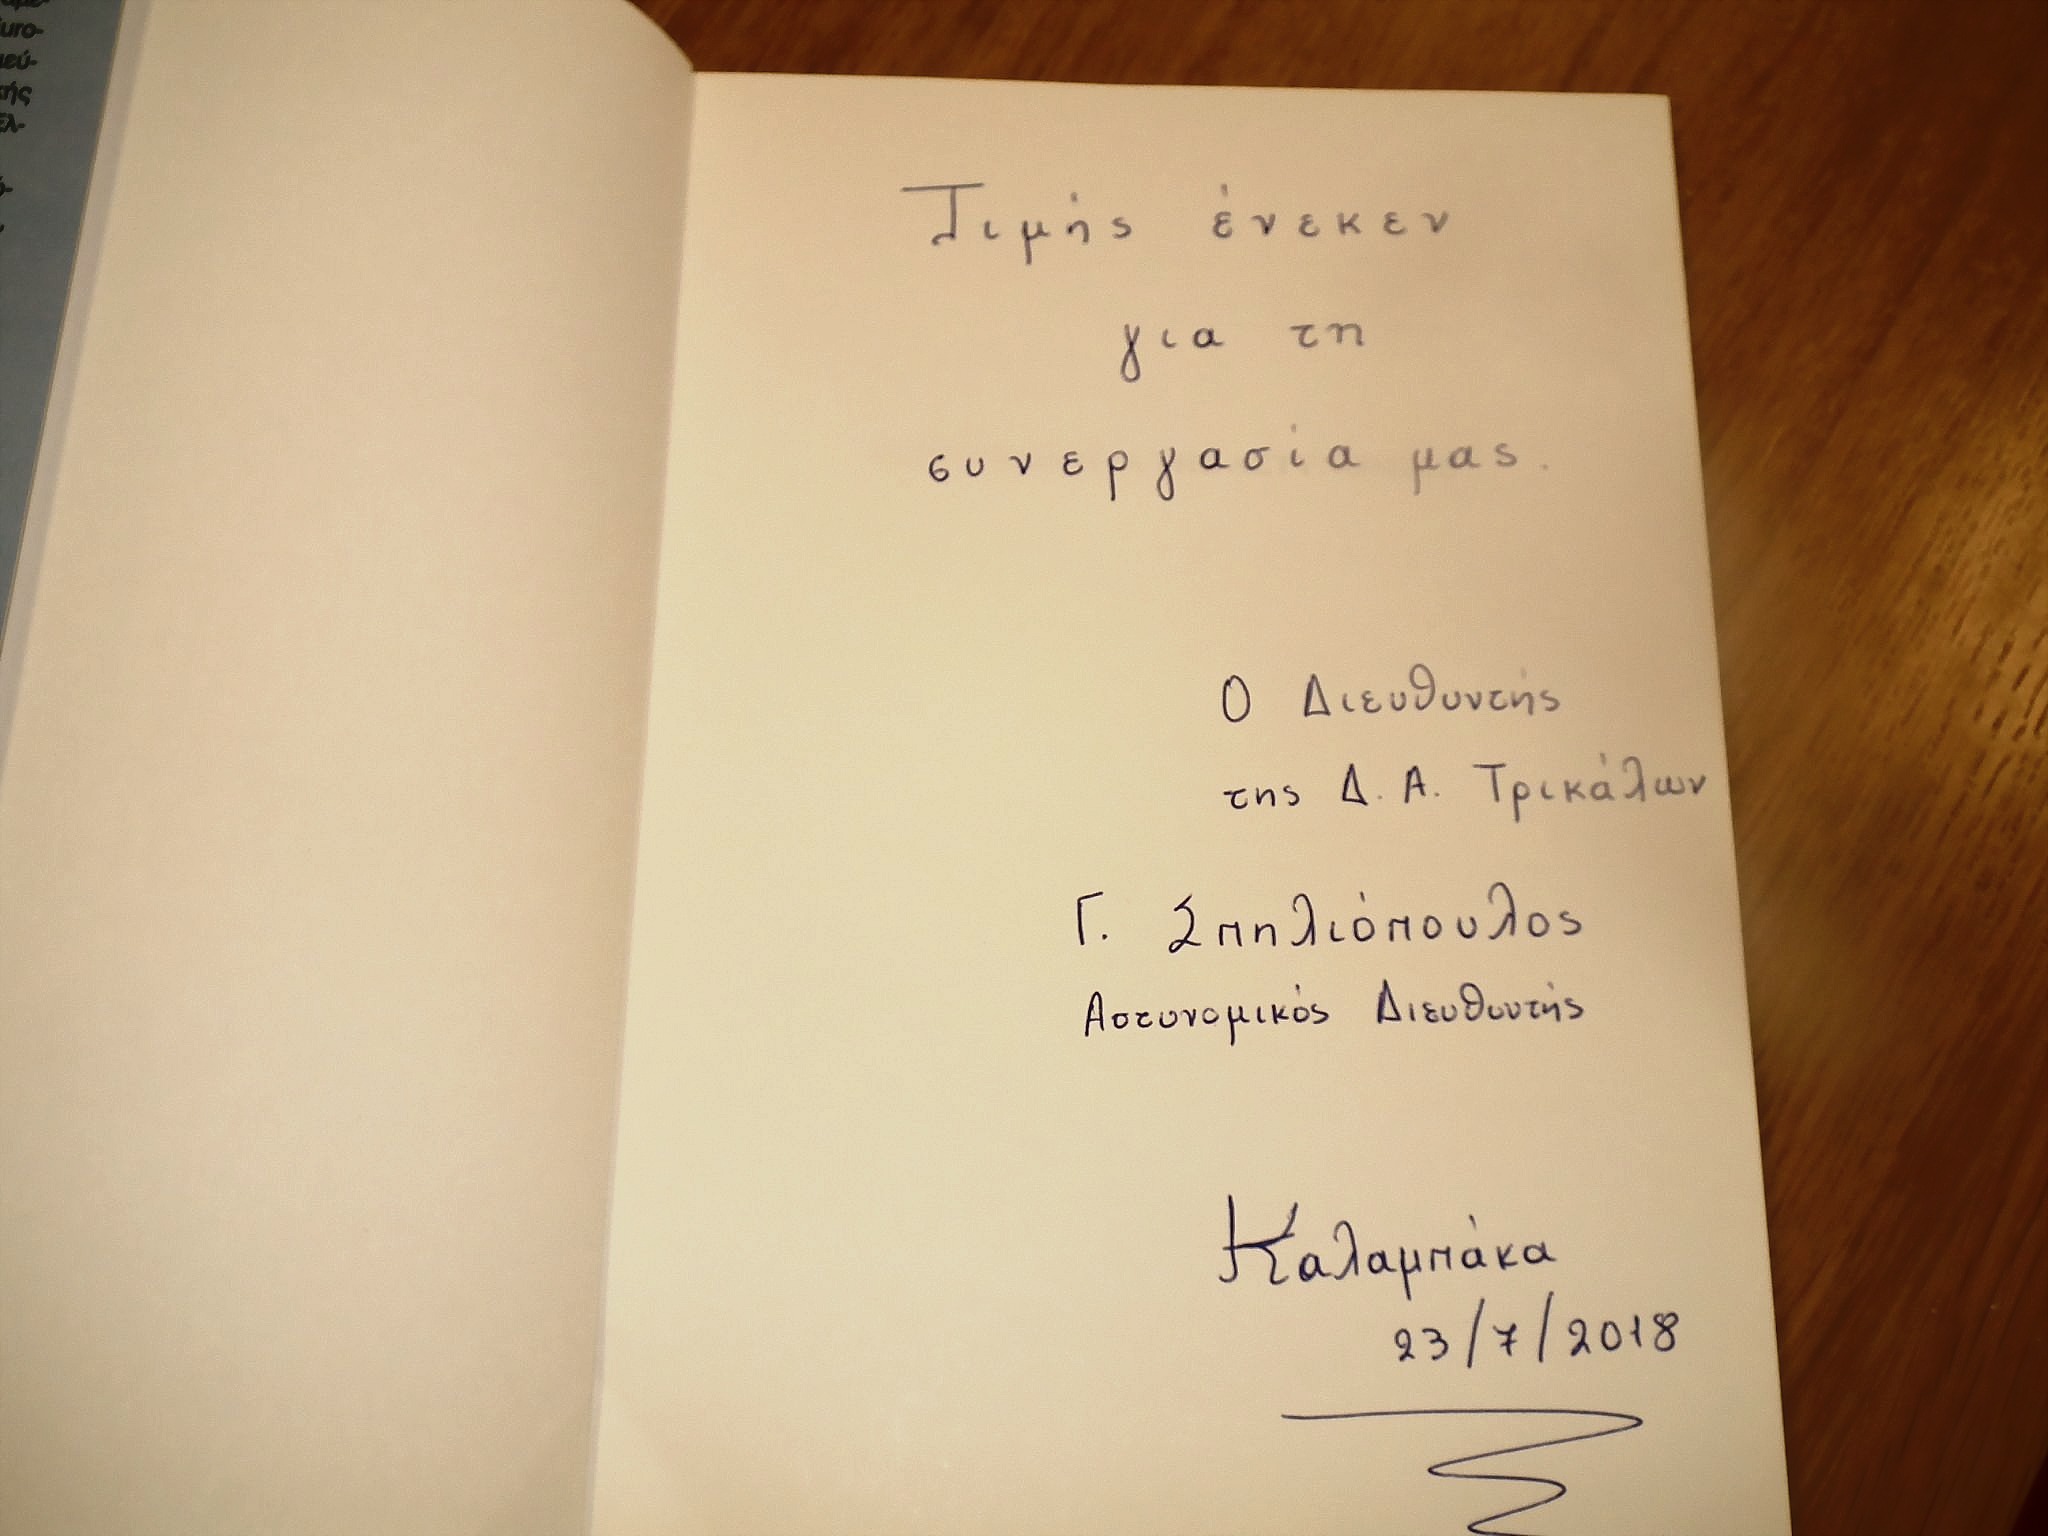 Τιμής ένεκεν
για τη
συνεργασία μας.
Ο Διευθυντής
της Δ. Α. Τρικάλων
Γ. Σπηλιόπουλος
Αστυνομικός Διευθυντής
Καλαμπάκα
23/7/2018